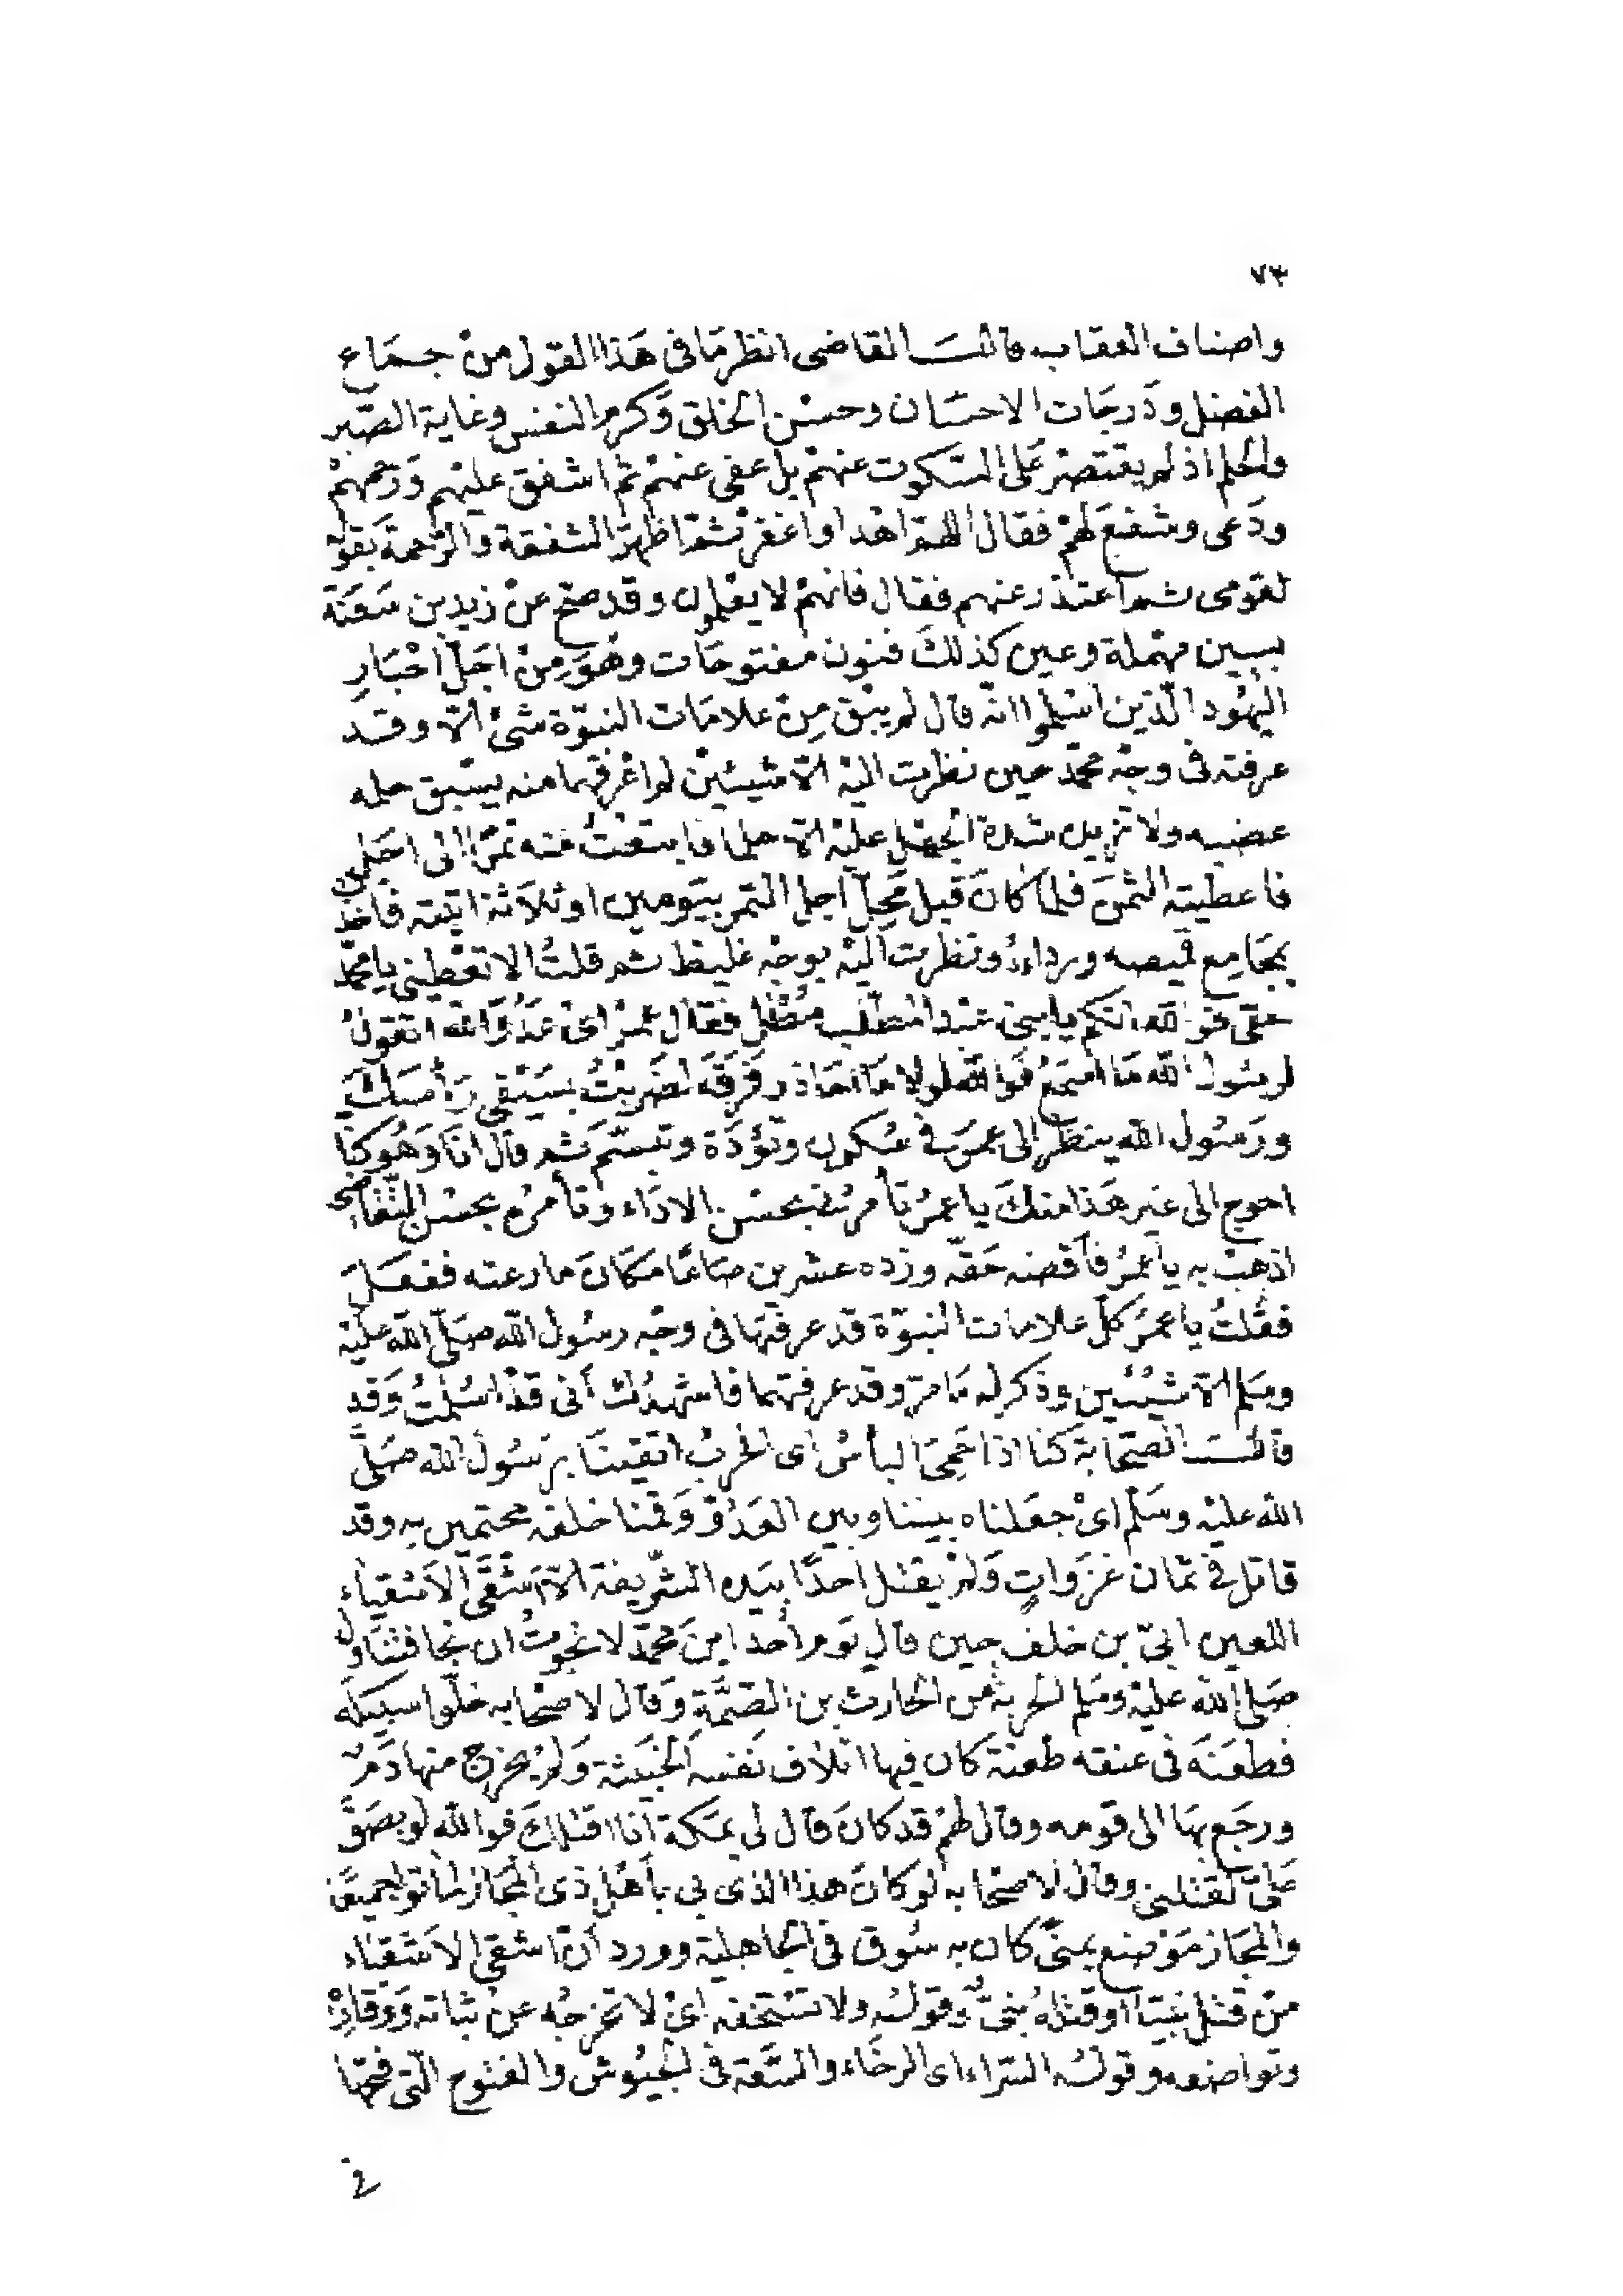 ٧٣
واصناف العقاب قالَ القاضى انظر مَا فى هَذا القول منْ جِمَاع
الفضل ودَرجَات الاحسَان وحسْن الخلق وَكرم النفس وغاية الصّبر
والحلم اذ لم يقتصرْ عَلى السّكوت عنهمْ بل عفى عنهمْ ثم اشفق عليْهم وَرحمهمْ
ودَعى وشفعَ لهمْ فقال اللهمّ اهْد او اغفرْ ثمّ اظهرَ الشفقة والرّحمة بقوله
لقوْمى ثم اعتذر عنهم فقال فانهمْ لا يعْلمون وقد صحّ عنْ زيد بن سَعَنَة
بسين مهْملة وعين كذلكَ فنون مفتوحَات وهُوَ مِنْ اجَلّ احْبَارِ
اليهُود الّذين اسْلموا انّه قال لم يبْق مِنْ علامَات النبوّة شىْ الاّ وقد
عرفته فى وجْه محمّد حين نظرت اليْه الاّ شيئيْن لم اعْرفهما منه يسْبق حلمه
غضبه ولا تزيده شدة الجهْل عليْه الاّ حلما فابتعْتُ منه تمرًا الى اجَل
فاعطيته الثمنَ فلما كانَ قبل مَحِلّ اجل التمر بيَومين او ثلاَثة اتيته فاخذ
بمجَامِع قميصه ورداءهُ ونظرت اليْه بوجْه غليظ ثم قلتُ الا تقْضِينى يا محمّد
حقى فو الله انكم يا بنى عبْد المطّلب مُطْل فقال عمرْ اىْ عَدُوَّ الله اتقولُ
لرسُول الله مَا اسمَعُ فوَ الله لولا مَا احَاذر قرَبَه لضَربْتُ بسَيْفى رَأْسَكَ
ورَسُول الله ينظر الى عمرَ فى سُكون وتؤدَة وتبسّم ثم قال انَا وَهُو كنا
احوج الى غير هَذا منكَ يا عمرُ تأمرُنى بحسْن الادَاء وتأمرُه بحسْن التقَاضِى
اذهبْ به يا عمرُ فاقضه حَقّه وزده عشرين صَاعًا مكَانَ ما رعته ففعَلَ
فقُلتُ يا عمرُ كلّ علامات النبوّة قد عرفتهَا فى وجْه رسُول الله صَلّى الله عليْه
وسَلم الاّ شيْئين وذكر له مَا مرّ وقد عرفتهما فاشهدُك أنى قدْ اسْلمْتُ وَقد
قالت الصّحَابَة كنا اذا حَمِىَ البأسُ اى الحَربُ اتقينَا برسُول الله صَلَّى
الله عليْه وسَلّم اىْ جعَلناه بيْننا وبين العَدُوّ وَقمْنا خلفه محْتمين به وقد
قاتل فى ثمان غزَواتٍ وَلمْ يقتل احدًا بيَده الشّريفة الاّ اَشْقَى الاَشقياء
اللعين ابىّ بن خلف حين قال يَوم أُحد اينَ محمّد لا نجوتُ ان نجا فتنَاول
صَلى الله عليْه وسَلم الحربةَ من الحارث بن الصّمَّةِ وَقال لاصْحابه خلّوا سبيلَه
فطعَنَه فى عنقه طعْنة كان فيها اتلاف نفسه الخبَيثة وَلمْ يخرج منها دَمٌ
ورجَع بهَا الى قوْمه وقال لهمْ قد كانَ قال لى بمَكة أنا اقتلكَ فو الله لو بصَقَ
عَلىَّ لقتلنى وقال لاصْحابه لو كانَ هذا الذى بى بأهْل ذى المجَاز لماتوا جميعًا
والمجَاز مَوْضع بمنىً كان به سُوق فى الجاهلية وورد أنّ اشقى الاَشقيَاء
منْ قتل نبيّا او قتلهُ نبىٌّ وقولُه ولا تسْتخفه اىْ لا تخرجُه عنْ ثباته وَوقارِهْ
وتواضعه وقولُه السّراء اى الرخَاء والسَّعَة فى الجيُوش والفتوح الّتى فتحهَا
فى